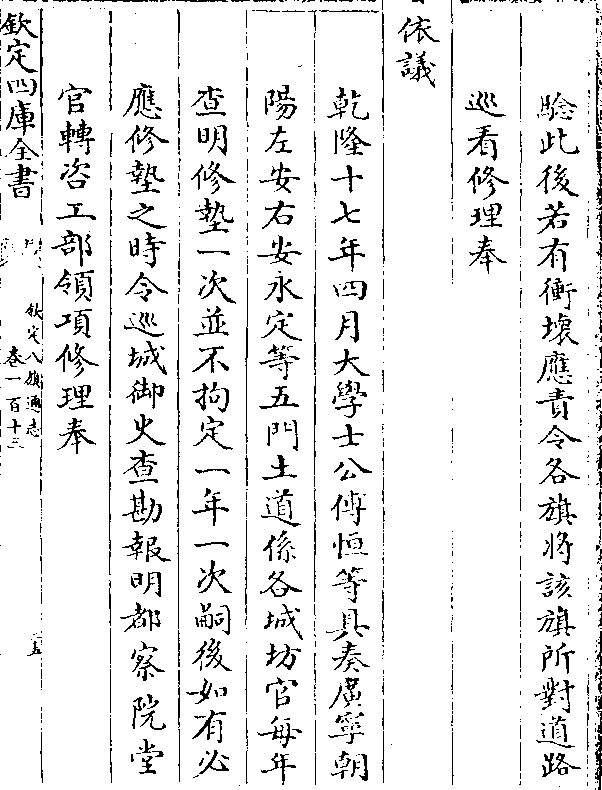 騐此後若有衝壞應責令各旗將該旗所對道路
巡看修理奉
依議
乾隆十七年四月大學士公傅恒等具奏廣寧朝
陽左安右安永定等五門土道係各城坊官每年
查明修墊一次並不拘定一年一次嗣後如有必
應修墊之時令巡城御史查勘報明都察院堂
官轉咨工部領項修理奉
欽定四庫全書
欽定八旗通志
卷一百十三